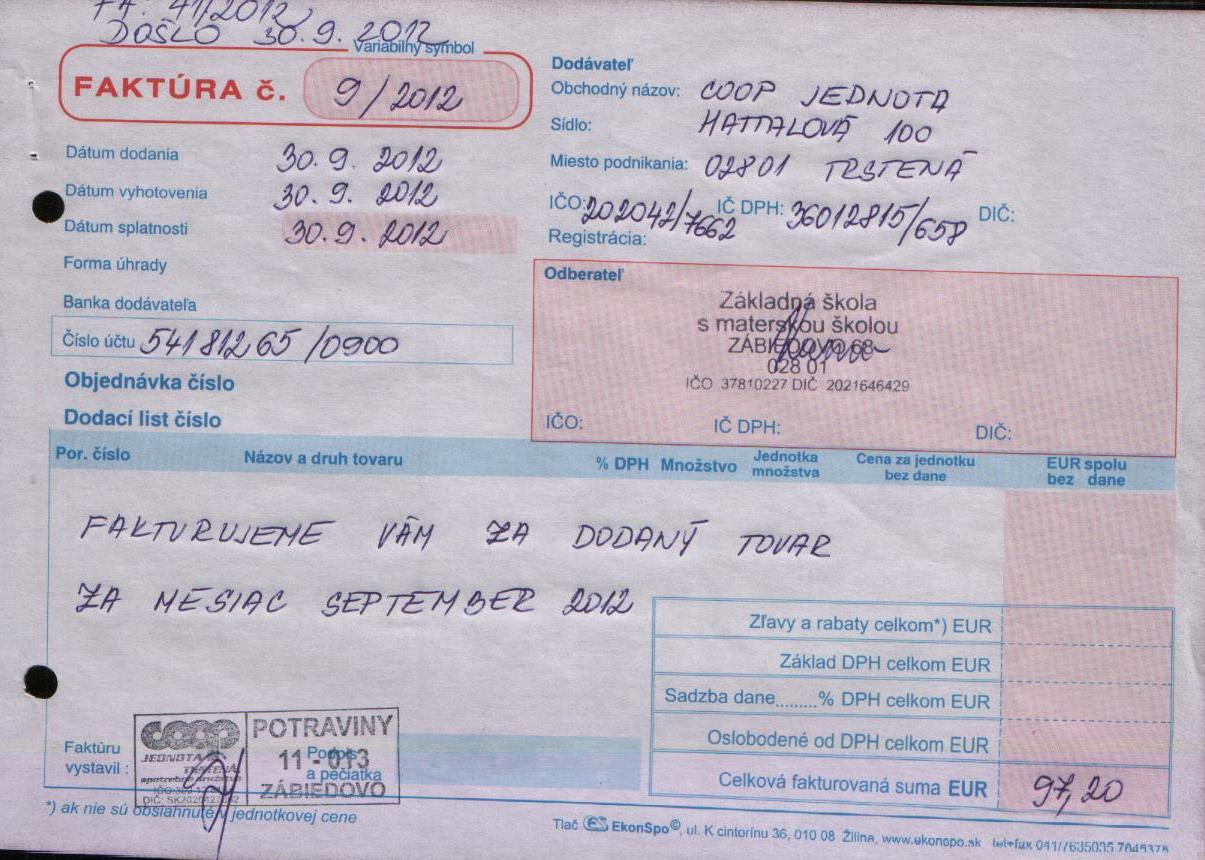 FA: 41/2012
DOŠLO 30.9.2012
Variabilný symbol
FAKTÚRA č. 9/2012
Dátum dodania 30.9.2012
Dátum vyhotovenia 30.9.2012
Dátum splatnosti 30.9.2012
Forma úhrady
Banka dodávateľa
Číslo účtu 54181265/0900
Objednávka číslo
Dodací list číslo
Dodávateľ
Obchodný názov: COOP JEDNOTA
Sídlo: HATTALOVÁ 100
Miesto podnikania: 02801 TRSTENÁ
IČO: 202042/7662 IČ DPH: 36012815/658 DIČ:
Registrácia:
Odberateľ
Základná škola
s materskou školou
ZÁBIEDOVO 68
028 01
IČO 37810227 DIČ 2021646429
IČO: IČ DPH: DIČ:
Por. číslo Názov a druh tovaru % DPH Množstvo Jednotka množstva Cena za jednotku bez dane EUR spolu bez dane
FAKTURUJEME VÁM ZA DODANÝ TOVAR
ZA MESIAC SEPTEMBER 2012
Zľavy a rabaty celkom*) EUR
Základ DPH celkom EUR
Sadzba dane.........% DPH celkom EUR
Oslobodené od DPH celkom EUR
Celková fakturovaná suma EUR 97,20
Faktúru vystavil :
Podpis a pečiatka
COOP
JEDNOTA
TRSTENÁ
spotrebné družstvo
POTRAVINY
11 - 013
ZÁBIEDOVO
*) ak nie sú obsiahnuté v jednotkovej cene
Tlač ES EkonSpo©, ul. K cintorínu 36, 010 08 Žilina, www.ekonspo.sk tel+fax 041/7635035